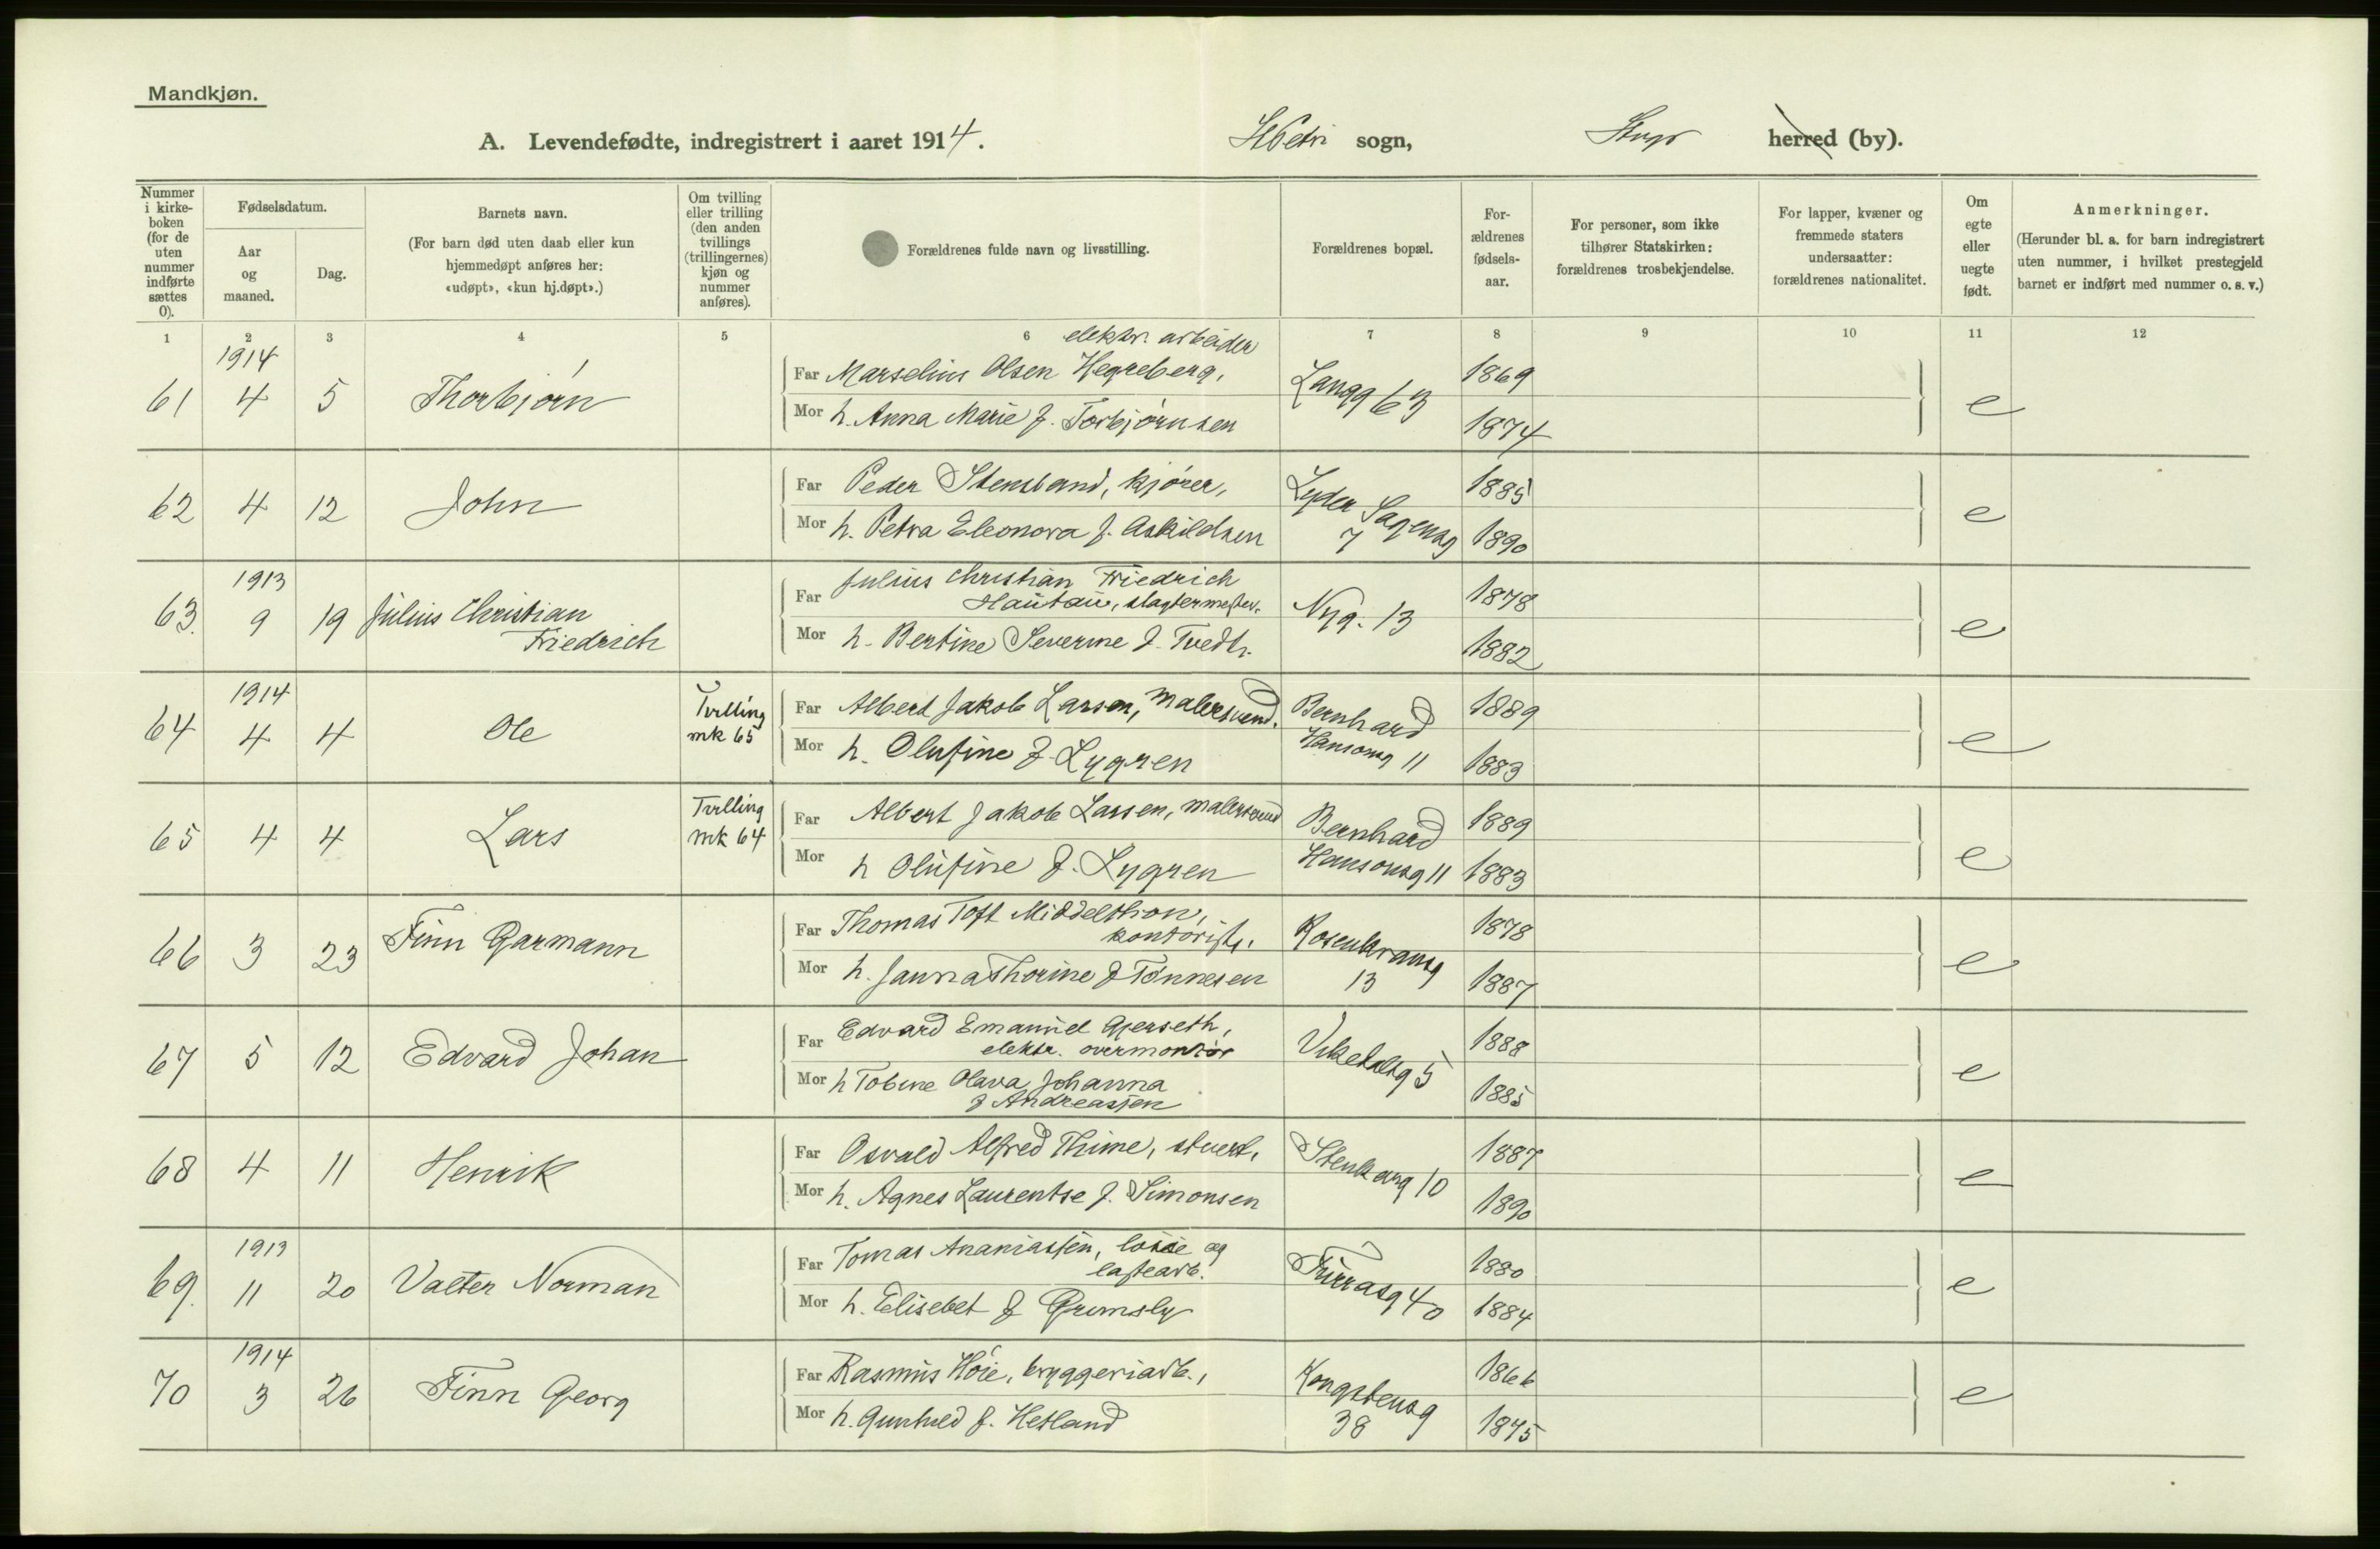 Mandkjøn.
A. Levendefødte, indregistrert i aaret 1914. St Petri sogn, Stvgr herred (by).
Nummer i kirke-boken (for de uten nummer indførte sættes 0).
Fødselsdatum.
Aar og maaned.
Dag.
Barnets navn.
(For barn død uten daab eller kun hjemmedøpt anføres her: «udøpt», «kun hj.døpt».)
Om tvilling eller trilling (den anden tvillings (trillingernes) kjøn og nummer anføres).
Forældrenes fulde navn og livsstilling.
Forældrenes bopæl.
For-ældrenes fødsels-aar.
For personer, som ikke tilhører Statskirken: forældrenes trosbekjendelse.
For lapper, kvæner og fremmede staters undersaatter: forældrenes nationalitet.
Om egte eller uegte født.
Anmerkninger.
(Herunder bl. a. for barn indregistrert uten nummer, i hvilket prestegjeld barnet er indført med nummer o. s. v.)
1 2 3 4 5 6 7 8 9 10 11 12
1914 elektr. arbeider
61 4 5 Thorbjørn Far Marselius Olsen Hegreberg, Langg 63 1869 e
Mor h. Anna Marie f. Torbjørnsen 1874
62 4 12 John Far Peder Stensland, kjører, Lyder Sagensg 7 1885 e
Mor h. Petra Eleonora f. Askildsen 1890
1913
63. 9 19 Julius Christian Friedrich Far Julius Christian Friedrich Hautau, slagtermester. Nyg. 13 1878 e
Mor h. Bertine Severine f. Tvedt. 1882
1914
64 4 4 Ole Tvilling mk 65 Far Albert Jakob Larsen, malersvend. Bernhard Hansonsg 11 1889 e
Mor h. Olufine f. Lygren 1883
65 4 4 Lars Tvilling mk 64 Far Albert Jakob Larsen, malersvend Bernhard Hansonsg 11 1889 e
Mor h Olufine f. Lygren 1883
66 3 23 Finn Garmann Far Thomas Toft Middelthon, kontorist. Rosenkransg 13 1878 e
Mor h. Janna Thorine f Tønnesen 1887
67 5 12 Edvard Johan Far Edvard Emanuel Gjerseth, elektr. overmontør Vikedalsg 5 1888 e
Mor h Tobine Olava Johanna f Andreassen 1885
68 4 11 Henrik Far Osvald Alfred Thime, stuert, Stenkarg 10 1887 e
Mor h. Agnes Laurentse f. Simonsen 1890
1913
69. 11 20 Valter Norman Far Tomas Ananiassen, losse og lastearb. Furrasg 40 1880 e
Mor h. Elisebet f Grumsly 1884
1914
70 3 26 Finn Georg Far Rasmus Høie, bryggeriarb., Kongstensg 38 1866 e
Mor h. Gunhild f. Hetland 1875